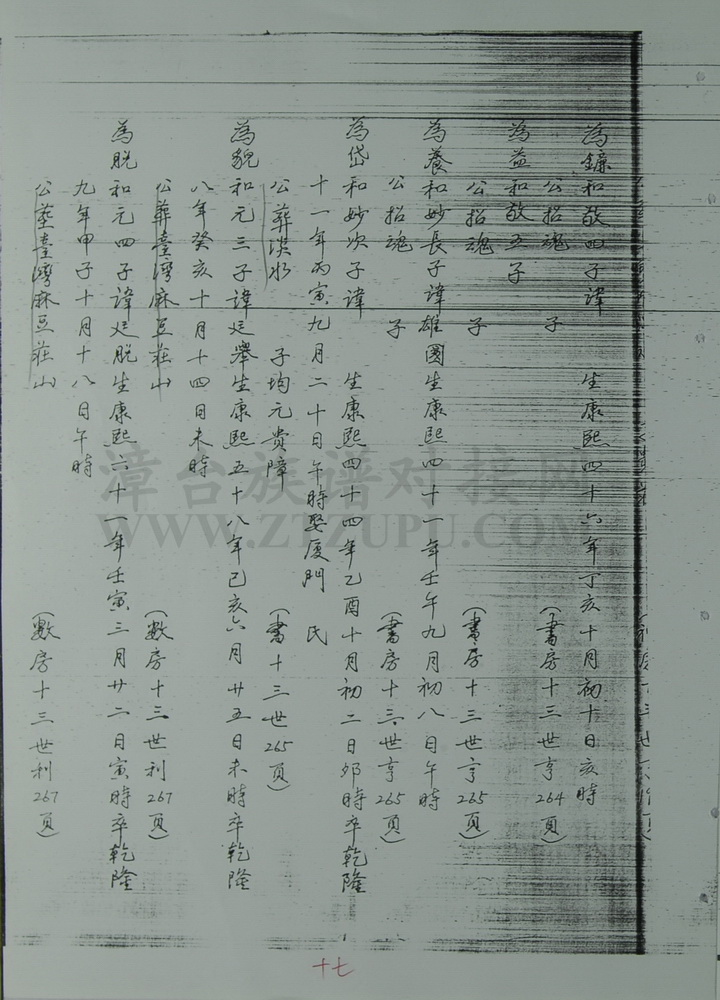 為鐤和敬四子諱 生康熙四十六年丁亥十月初十日亥時
公招魂 子 (書房十三世亨264頁)
為益和敬五子
公招魂 子 (書房十三世亨265頁)
為養和妙長子諱雄圖生康熙四十一年壬午九月初八日午時
公招魂 子 (書房十三世亨265頁)
為岱和妙次子諱 生康熙四十四年乙酉十月初二日卯時卒乾隆
十一年丙寅九月二十日午時娶厦門 氏
公葬淡水 子均元貴障 (書十三世265頁)
為貌和元三子諱廷舉生康熙五十八年己亥六月廿五日未時卒乾隆
八年癸亥十月十四日未時
公葬臺灣麻豆莊山 (數房十三世利267頁)
為脫和元四子諱廷脫生康熙六十一年壬寅三月廿二日寅時卒乾隆
九年甲子十月十八日午時
公葬臺灣麻豆莊山 (數房十三世利267頁)
十七
漳台族谱对接网
WWW.ZTZUPU.COM